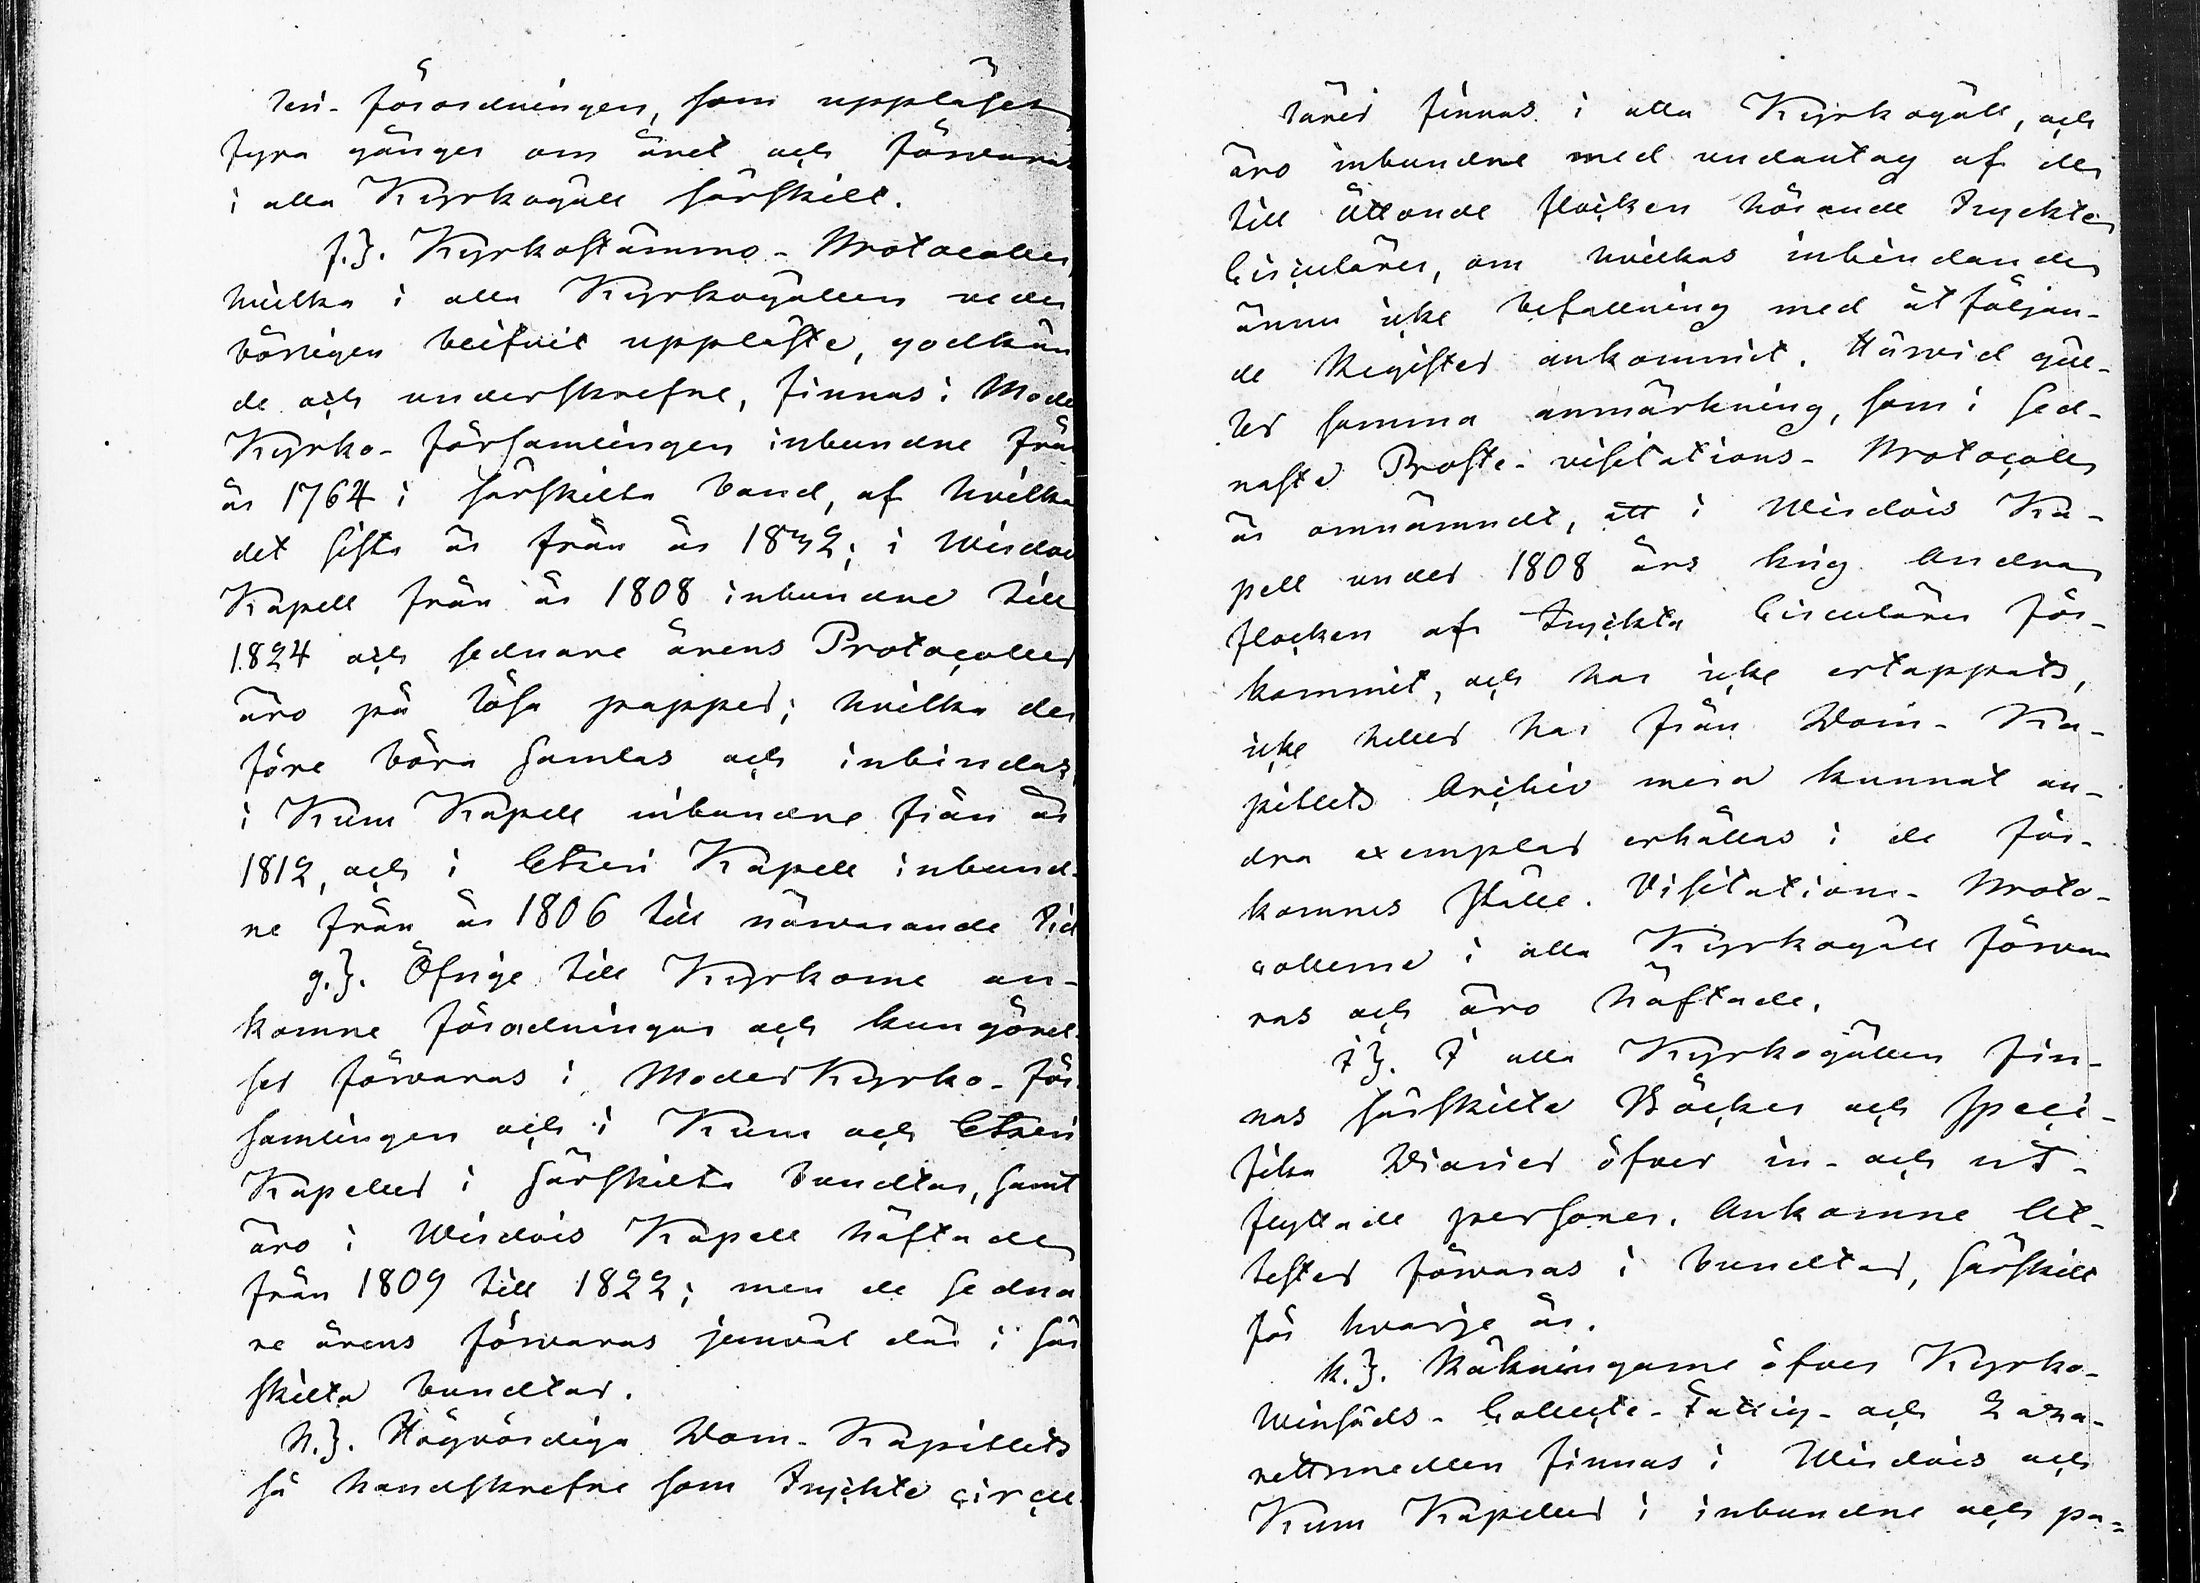 teri-förordningen, som uppläses
fyra gånger om året och förvaras
i alla Kyrkogäll särskilt.
f.}. Kyrkostämmo-Protocoller,
hvilka i alla Kyrkogällen veder
börligen blifvit uppläste, godkän
de och underskrefne, finnas i Moder
Kyrko-församlingen inbundne från
år 1764 i särskilta band, af hvilka
det sista är från år 1832; i Wirdois
Kapell från år 1808 inbundne till
1824 och sednare årens Protocoller
äro på lösa papper; hvilka der
före böra samlas och inbindas,
i Kuru Kapell inbundne från år
1812, och i Etseri Kapell inbund-
ne från år 1806 till närvarande tid
g.}. Öfrige till Kyrkorne an-
komne förordningar och kungörel-
ser förvaras i ModerKyrko-för-
samlingen och i Kuru och Etseri
Kapeller i särskilta bundtar, samt
äro i Wirdois Kapell häftade
från 1809 till 1822; men de sedna
re årens förvaras jemväl där i sär
skilta bundtar.
h.}. Högvördiga Dom-Kapitlets
så handskrefne som tryckte circu
lärer finnas i alla Kyrkogäll, och
äro inbundne med undantag af de
till Åttonde flocken hörande tryckte
Circulärer, om hvilkas inbindande
ännu icke befallning med åtföljan-
de Register ankommit. Härvid gäl-
ler samma anmärkning, som i sed-
naste Proste-visitations-Protocoll
är omnämndt, att i Wirdois Ka-
pell under 1808 års krig Andra
flocken af tryckta Circulärer för-
kommit, och har icke ertappats,
icke heller har från Dom-Ka-
pitlets Archiv mera kunnat an-
dra exemplar erhållas i de för-
komnes ställe. Visitations-Proto-
collerne i alla Kyrkogäll förva
ras och äro häftade.
i}. I alla Kyrkogällen fin-
nas särskilte Böcker och speci-
fika Diarier öfver in- och ut-
flyttade personer. Ankomne At-
tester förvaras i bundtar, särskilt
för hvarje år.
k.}. Räkningarne öfver Kyrko-
Winsäds-Collecte-Fattig- och Laza-
rettsmedlen finnas i Wirdois och
Kuru Kapeller i inbundne och pa=